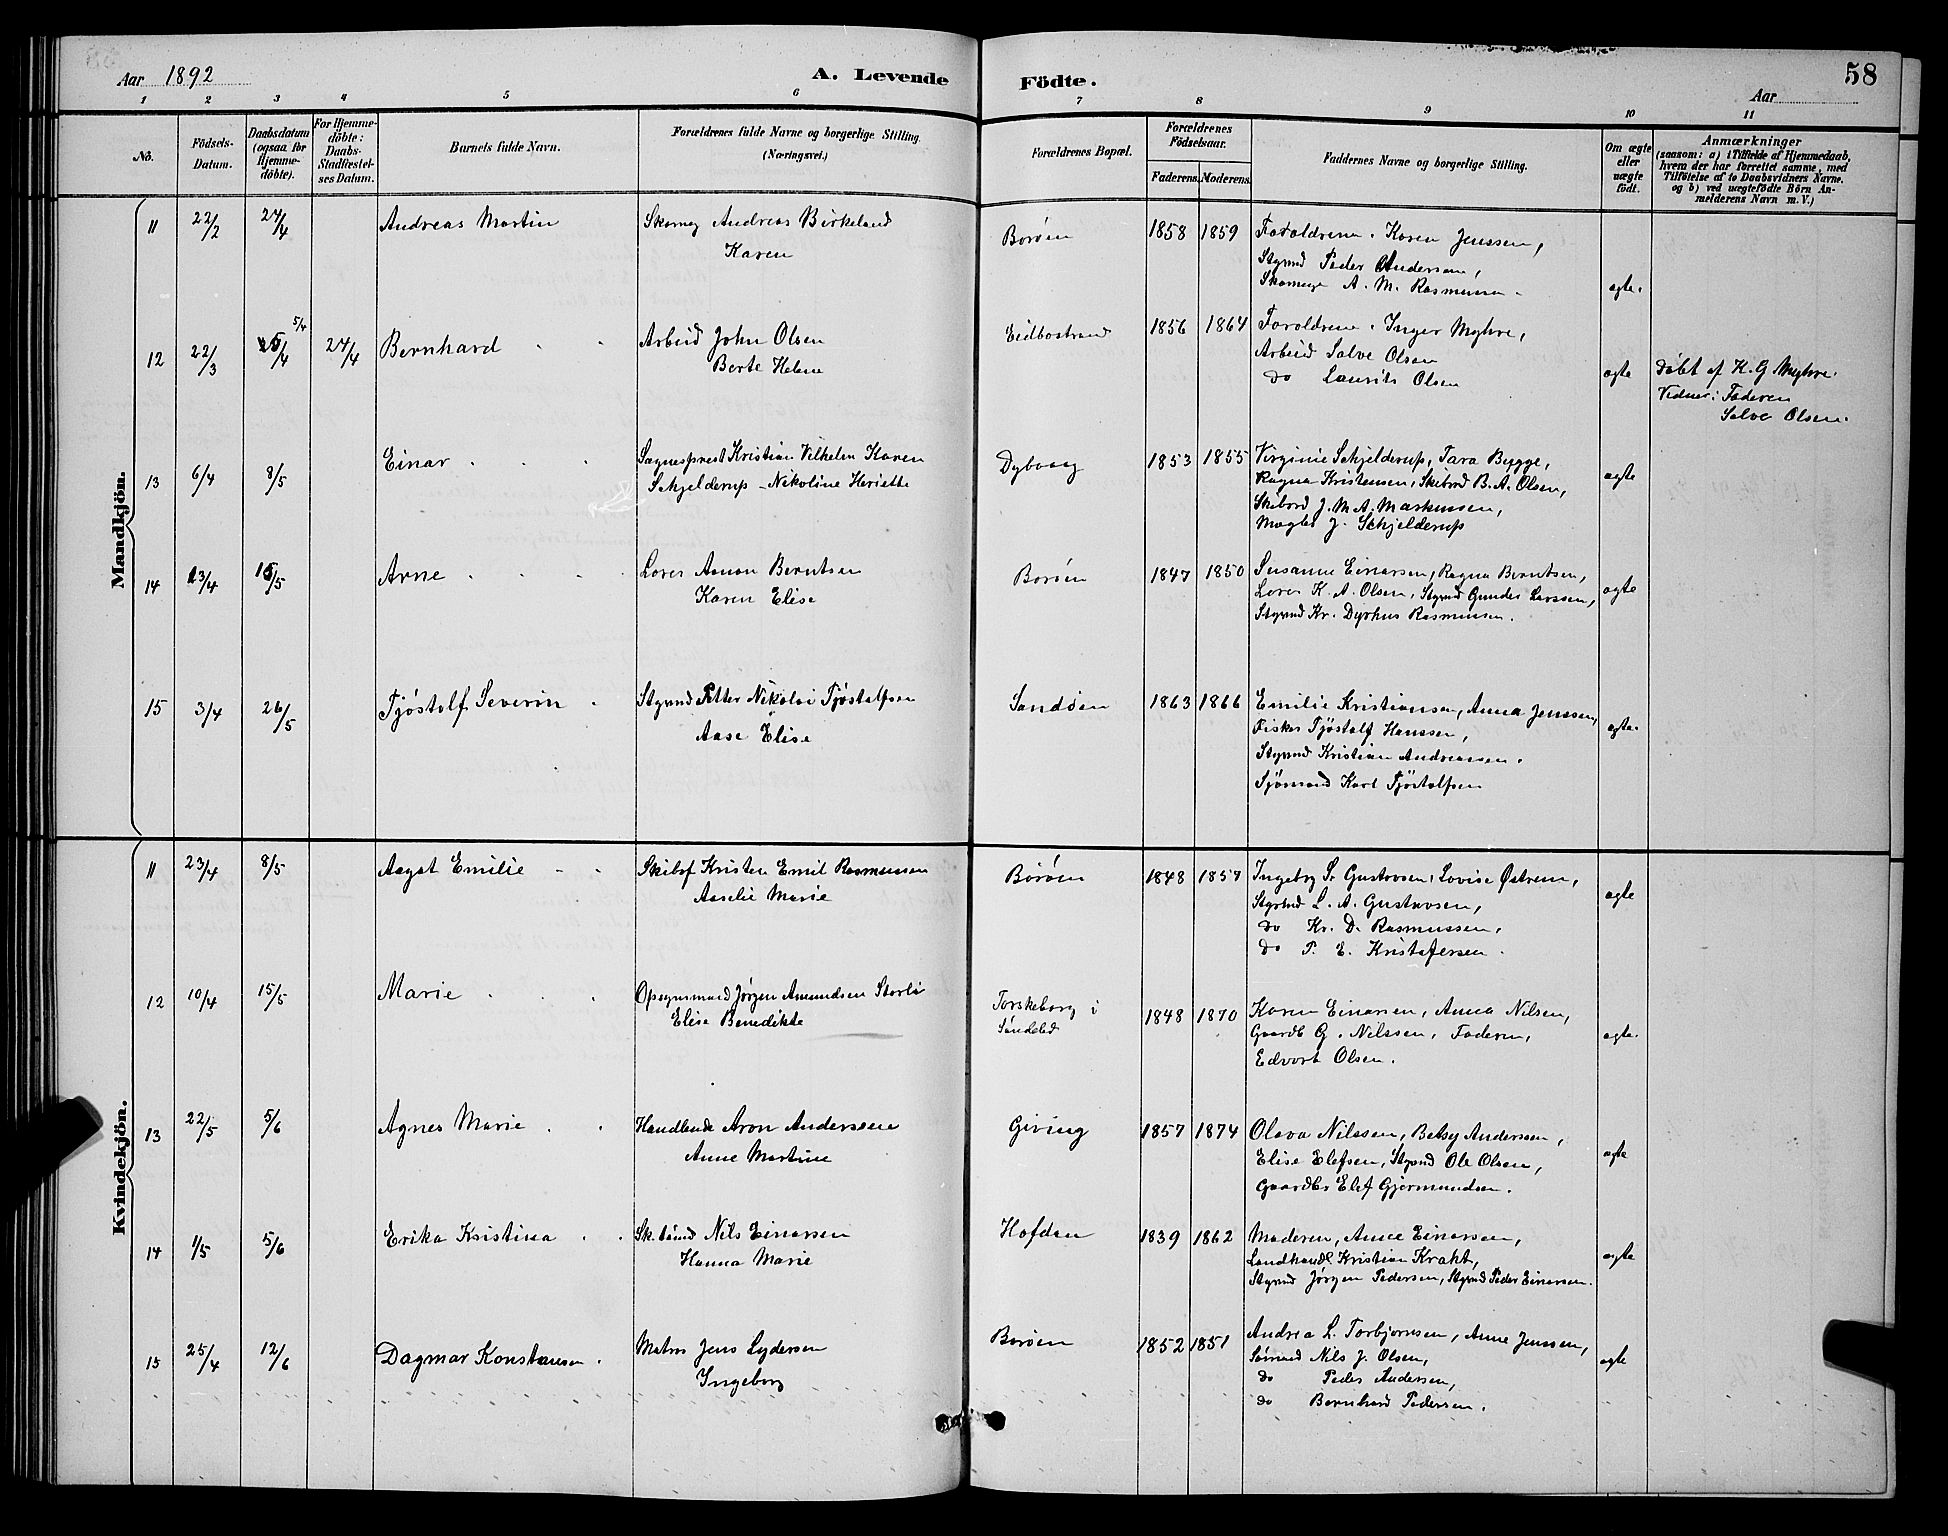 Aar 1892
A. Levende Födte.
58
Aar
1 2 3 4 5 6 7 8 9 10 11
No.
Födsels-
Datum.
Daabsdatum
(ogsaa for
Hjemme-
döbte).
For Hjemme-
döbte:
Daabs-
Stadfæstel-
ses Datum.
Barnets fulde Navn.
Forældrenes fulde Navne og borgerlige Stilling.
(Næringsvei.)
Forældrenes Bopæl.
Forældrenes
Födselsaar.
Faderens. Moderens.
Faddernes Navne og borgerlige Stilling.
Om ægte
eller
uægte
født.
Anmærkninger
(saasom: a) i Tilfælde af Hjemmedaab,
hvem der har forrettet samme, med
Tilföielse af to Daabsvidners Navne.
og b) ved uægtefödte Börn An-
melderens Navn m. V.)
Mandkjön.
11 22/2 24/4 Andreas Martin
Skomag Andreas Birkeland
Karen
Borøen 1858 1859
Forældrene, Karen Jenssen,
Stgrmd Peder Andersen,
A. M. Rasmussen
ægte.
12 22/3 5/4 24/4 Bernhard
Arbeid John Olsen
Berte Helene
Eidbostrand 1856 1864
Forældrene, Inger Myhre,
Arbeid Salve Olsen
do Laurits Olsen
ægte
Døbt af K. G Myhre.
Vidner: Faderen
Salve Olsen.
13 6/4 8/5 Einar
Sognesprest Kristian Vilhelm Koren
Schjelderup - Nikoline Henriette
Dybvaag 1853 1855
Virginie Schjelderup, Tara Bugge,
Ragna Kristensen, Skibsrd B. A. Olsen,
Skibsrd J. M. A. Markussen,
J. Schjelderup
ægte
14 23/4 15/5 Arne
Lods Aanon Berntsen
Karen Elise
Borøen 1847 1850
Susanne Einarsen, Ragna Berntsen,
Lods K. A. Olsen, Stgrmd Gunder Larssen,
Stgrmd Kr. Dyrhus Rasmussen.
ægte
15 3/4 26/5 Tjøstolf Severin
Stgrmd Petter Nikolai Tjøstolfsen
Aase Elise
Sandøen 1863 1866
Emilie Kristiansen, Anna Jenssen,
Fisker Tjøstolf Hanssen,
Stgrmd Kristian Andreassen.
Sjømand Karl Tjøstolfsen
ægte.
Kvindekjön.
11 23/4 8/5 Aagot Emilie
Skibsf Kristen Emil Rasmussen
Aurelie Marie
Borøen 1848 1857
Ingeborg S. Gustavsen, Lovise Østrem,
Stgrmd L. A. Gustavsen,
do Kr. D. Rasmussen,
do P. E. Kristofersen.
ægte
12 10/4 15/5 Marie
Opsynsmand Jørgen Amundsen Storli
Elise Benedikte
Torskeberg i
Søndeled
1848 1870
Karen Einarsen, Anna Nilsen,
Gaardb G. Nilssen, Faderen,
Edvart Olsen.
ægte.
13 22/5 5/6 Agnes Marie
Handlende Aron Anderssen
Anne Martine
Giving 1857 1874
Olava Nilssen, Betsy Anderssen,
Elise Elefsen, Stgrmd Ole Olsen,
Gaardbr Elef Gjermundsen.
ægte
14 1/5 5/6 Erika Kristina
Sk.tømd Nils Einarsen
Hanna Marie
Hofden 1839 1862
Moderen, Anne Einarsen,
Landhandl Kristian Krakt,
Stgrmd Jørgen Pedersen, Stgrmd Peder Einarsen.
ægte
15 25/4 12/6 Dagmar Konstanse
Matros Jens Lydersen
Ingeborg
Borøen 1852 1851
Andrea L. Torbjørnsen, Anne Jenssen,
Sømand Nils J. Olsen,
do Peder Andersen,
do Bernhard Pedersen.
ægte